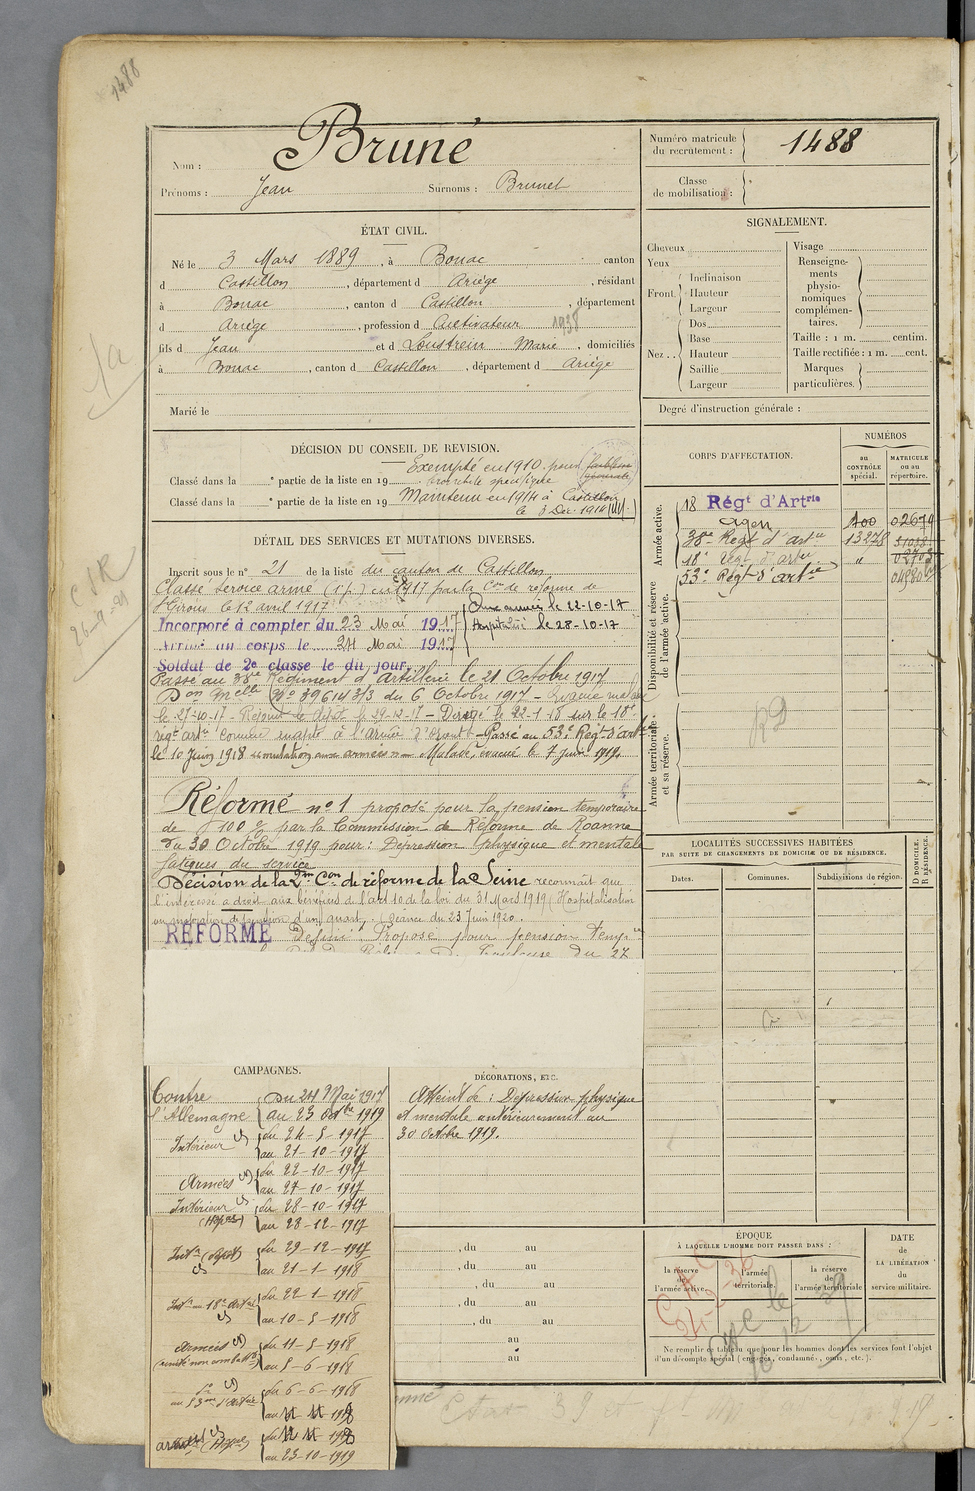 1488
Nom : Bruné
Prénoms : Jean Surnoms : Brunet
ÉTAT CIVIL.
Né le 3 Mars 1889, à Bonac canton
d Castillon, département d Ariège, résidant
à Bonac, canton d Castillon, département
d Ariège, profession d Cultivateur 1938
fils d Jean et d Loustrein Marie, domiciliés
à Bonac, canton d Castillon, département d Ariège
Marié le
DÉCISION DU CONSEIL DE REVISION.
Exempté en 1910 pour
Classé dans la e partie de la liste en 19
Classé dans la e partie de la liste en 19 Maintenu en 1914 à Castillon
le 3 Déc. 1914
DÉTAIL DES SERVICES ET MUTATIONS DIVERSES.
Inscrit sous le n° 21 de la liste du canton de Castillon
Classé service armé en 1917 par la Con de réforme de
St Girons le 12 avril 1917
Aux armées le 22-10-17
Incorporé à compter du 23 Mai 1917
Hospitalisé le 28-10-17
Arrivé au corps le 24 Mai 1917
Soldat de 2e classe le dit jour.
Passé au 38me Régiment d'Artillerie le 21 Octobre 1917
Don Melle No 39614 3/3 du 6 Octobre 1917 - Evacué malade
le 27-10-17 - Rejoint le dépôt le 29-12-17 - Dirigé le 22-1-18 sur le 18e
régt artie comme inapte à l'Armée d'Orient - Passé au 53e Régt d'artie
le 10 Juin 1918 mutation aux armées Malade, évacué le 7 Juin 1919.
Réformé n°1 proposé pour la pension temporaire
de 100 % par la Commission de Réforme de Roanne
du 30 Octobre 1919 pour : Dépression physique et mentale
fatigues du service
Décision de la 2me Con de réforme de la Seine reconnait que
l'intéressé a droit aux bénéfices de l'art 10 de la loi du 31 Mars 1919 (Hospitalisation
ou majoration de pension d'un quart). Séance du 23 Juin 1920.
RÉFORMÉ Défini. Proposé pour pension temp
Toulouse du 27
CAMPAGNES.
Contre l'Allemagne du 24 Mai 1917
au 23 Octbre 1919
Intérieur du 24-5-1917
au 21-10-1917
Armées du 22-10-1917
au 27-10-1917
Intérieur du 28-10-1917
(Hopal) au 28-12-1917
Intr (dépôt) du 29-12-1917
au 21-1-1918
Intr - 18e artie du 22-1-1918
au 10-5-1918
Armées du 11-5-1918
(unité non combatte) au 5-6-1918
au 53me d'artie du 6-6-1918
au 11-11-1918
(Hopal) du 12-11-1918
au 23-10-1919
DÉCORATIONS, ETC.
Atteint de : Dépression physique
et mentale antérieurement au
30 octobre 1919.
, du au
, du au
, du au
, du au
, du au
au
au
Numéro matricule du recrutement : 1488
Classe de mobilisation :
SIGNALEMENT.
Cheveux
Yeux
Front. Inclinaison
Hauteur
Largeur
Nez . . Dos
Base
Hauteur
Saillie
Largeur
Visage
Renseignements physionomiques complémentaires.
Taille : 1 m. centim.
Taille rectifiée : 1 m. cent.
Marques particulières.
Degré d'instruction générale :
CORPS D'AFFECTATION.
NUMÉROS
au CONTRÔLE spécial.
MATRICULE ou au répertoire.
Armée active.
18 Régt d'Artrie Agen 100 02679
38me Regt d'artie 13278
18e Régt d'artie "
53e Régt d'artie
Disponibilité et réserve de l'armée active.
Armée territoriale et sa réserve.
RD
LOCALITÉS SUCCESSIVES HABITÉES
PAR SUITE DE CHANGEMENTS DE DOMICILE OU DE RÉSIDENCE.
Dates.
Communes.
Subdivisions de région.
D DOMICILE.
R RÉSIDENCE.
ÉPOQUE
À LAQUELLE L'HOMME DOIT PASSER DANS :
la réserve de l'armée active.
l'armée territoriale.
la réserve de l'armée territoriale
DATE
de
LA LIBÉRATION
du
service militaire.
Ne remplir ce tableau que pour les hommes dont les services font l'objet
d'un décompte spécial (engagés, condamnés, omis, etc.).